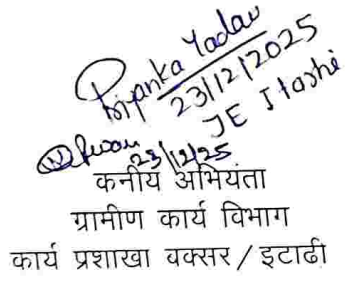 Priyanka Yadav
23/12/2025
JE Itashi
23/12/25
कनीय अभियंता
ग्रामीण कार्य विभाग
कार्य प्रशाखा वक्सर / इटाढी